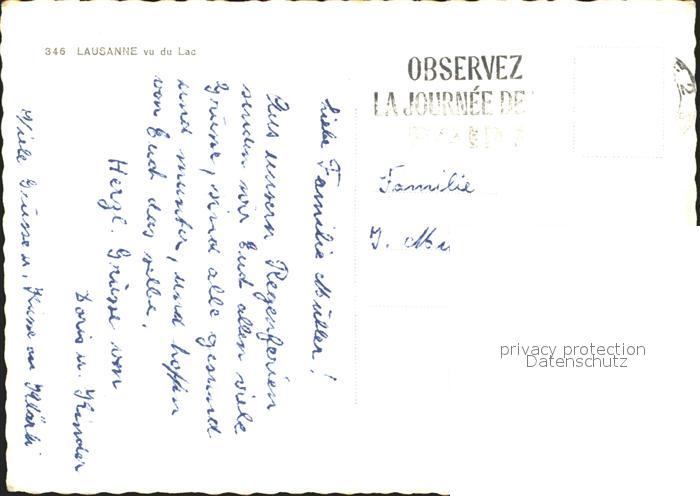 346 LAUSANNE vu du Lac
OBSERVEZ
LA JOURNÉE DE
Familie
J. Mü
privacy protection
Datenschutz
Liebe Familie Müller!
Aus unsern Regenferien
senden wir Euch allen viele
Grüsse, sind alle gesund
und munter, und hoffen
von Euch das selbe.
Herzl. Grüsse von
Doris u. Kinder
Viele Grüsse u. Küsse an Klärli